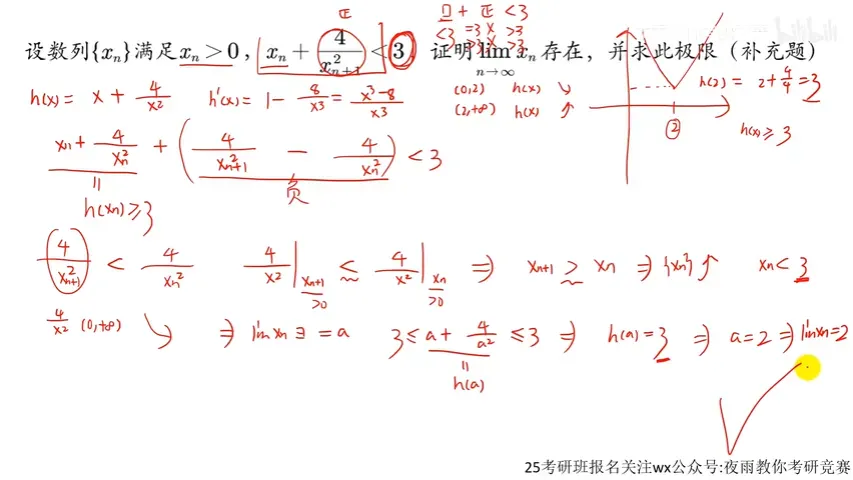 正
□ + 正 < 3
<3 =3 × >3
>3 × >3
设数列{xₙ}满足xₙ > 0，xₙ + 4/x²ₙ₊₁ < 3，证明 lim(n→∞) xₙ 存在，并求此极限（补充题）
h(x) = x + 4/x² h'(x) = 1 - 8/x³ = (x³-8)/x³
(0,2) h(x) ↘
(2,+∞) h(x) ↗
h(2) = 2 + 4/4 = 3
②
h(x) ≥ 3
xₙ + 4/xₙ² + (4/x²ₙ₊₁ - 4/xₙ²) < 3
|| 负
h(xₙ) ≥ 3
4/x²ₙ₊₁ < 4/xₙ² 4/x² |ₓₙ₊₁ ≤ 4/x² |ₓₙ ⇒ xₙ₊₁ ≥ xₙ ⇒ {xₙ} ↑ xₙ < 3
>0 >0
4/x² (0,+∞) ↘ ⇒ lim xₙ ∃ = a 3 ≤ a + 4/a² ≤ 3 ⇒ h(a) = 3 ⇒ a = 2 ⇒ lim xₙ = 2
||
h(a)
25考研班报名关注wx公众号:夜雨教你考研竞赛